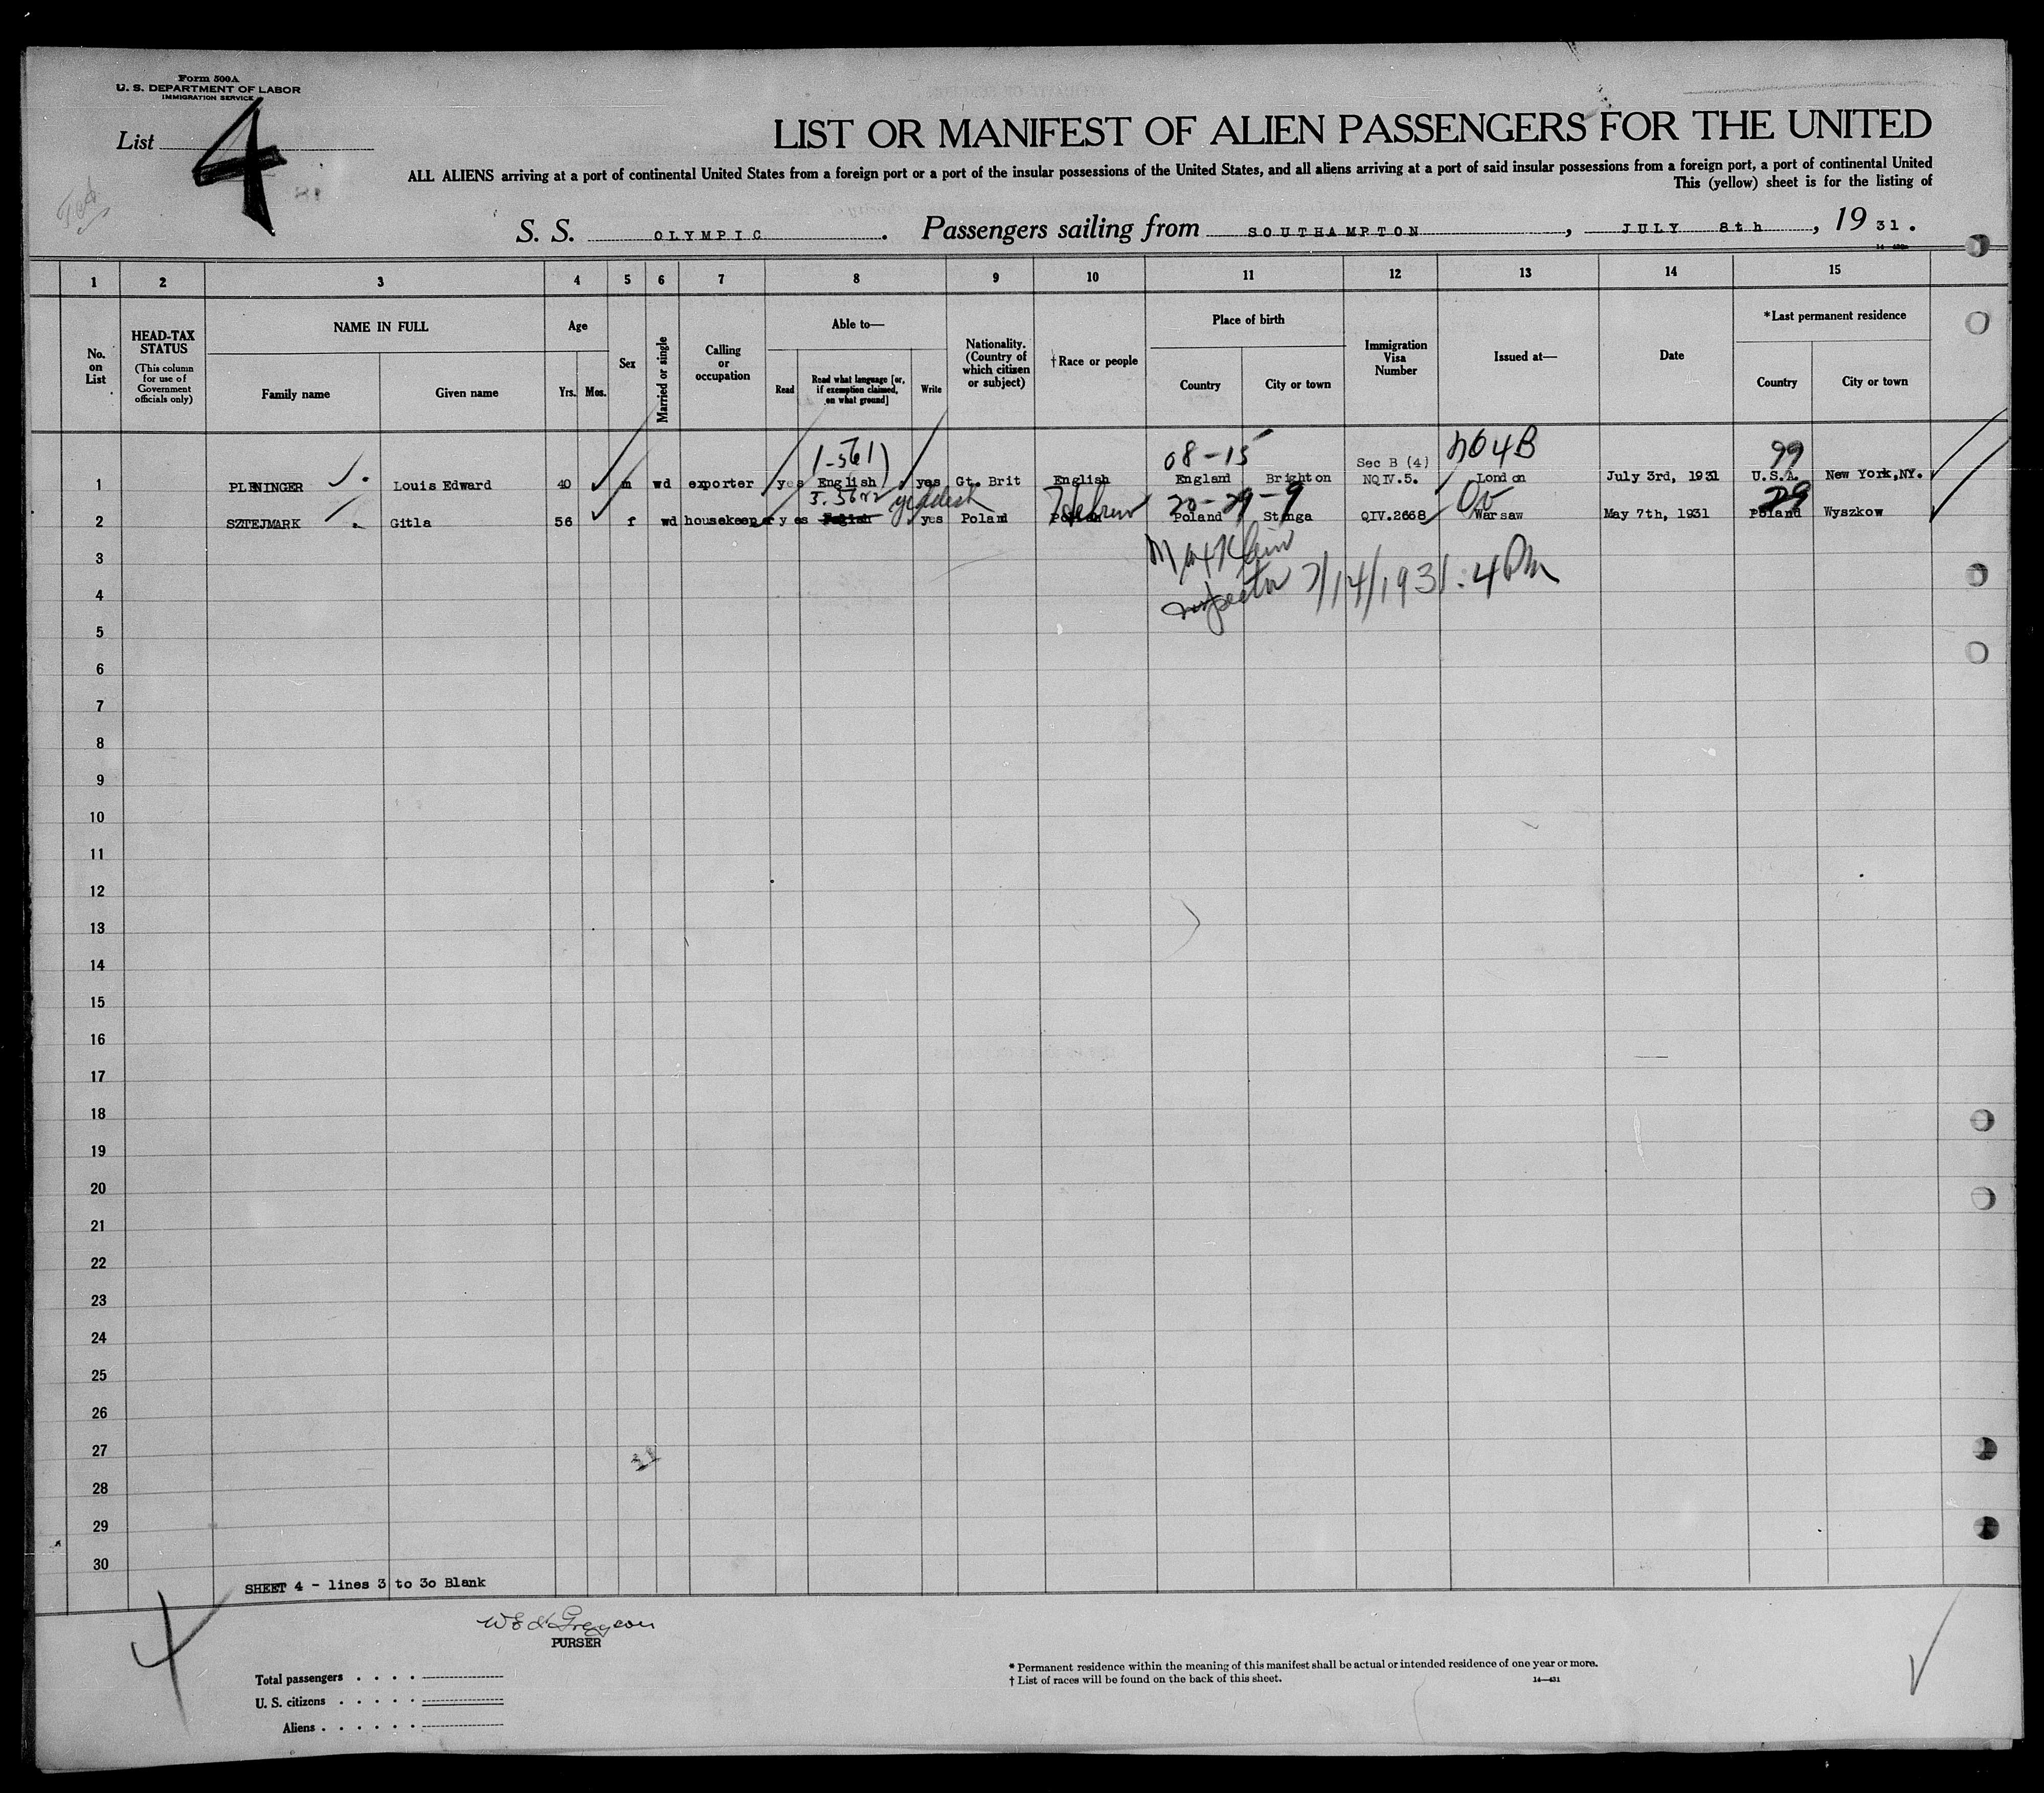 Form 500A
U. S. DEPARTMENT OF LABOR
IMMIGRATION SERVICE
List 4
LIST OR MANIFEST OF ALIEN PASSENGERS FOR THE UNITED
ALL ALIENS arriving at a port of continental United States from a foreign port or a port of the insular possessions of the United States, and all aliens arriving at a port of said insular possessions from a foreign port, a port of continental United
This (yellow) sheet is for the listing of
S. S. OLYMPIC. Passengers sailing from SOUTHAMPTON, JULY 8th, 19 31.
1 2 3 4 5 6 7 8 9 10 11 12 13 14 15
No. on List
HEAD-TAX STATUS (This column for use of Government officials only)
NAME IN FULL
Family name Given name
Age
Yrs. Mos.
Sex
Married or single
Calling or occupation
Able to—
Read Read what language [or, if exemption claimed, on what ground] Write
Nationality. (Country of which citizen or subject)
†Race or people
Place of birth
Country City or town
Immigration Visa Number
Issued at—
Date
*Last permanent residence
Country City or town
08-15 99
Sec B (4)
1 PLENINGER Louis Edward 40 m wd exporter yes English yes Gt. Brit English England Brighton NQIV.5. London July 3rd, 1931 U.S.A. New York,NY.
Hebrew 29
2 SZTEJMARK Gitla 56 f wd housekeeper yes yes Poland Poland QIV.2668 Warsaw May 7th, 1931 Poland Wyszkow
Max Klein
Inspector 7/14/1931. 4 PM
3
4
5
6
7
8
9
10
11
12
13
14
15
16
17
18
19
20
21
22
23
24
25
26
27
28
29
30
SHEET 4 - lines 3 to 30 Blank
PURSER
Total passengers . . . .
U. S. citizens . . . . .
Aliens . . . . . .
* Permanent residence within the meaning of this manifest shall be actual or intended residence of one year or more.
† List of races will be found on the back of this sheet.